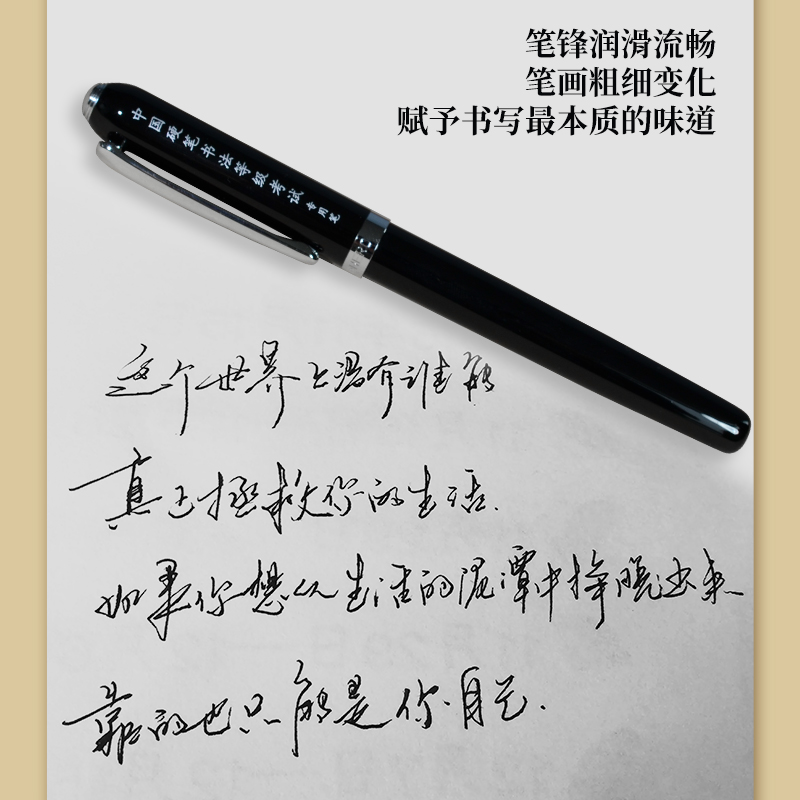 笔锋润滑流畅
笔画粗细变化
赋予书写最本质的味道
中国硬笔书法等级考试专用笔
这个世界上没有谁能
真正拯救你的生活.
如果你想从生活的泥潭中挣脱出来
靠的也只能是你自己.